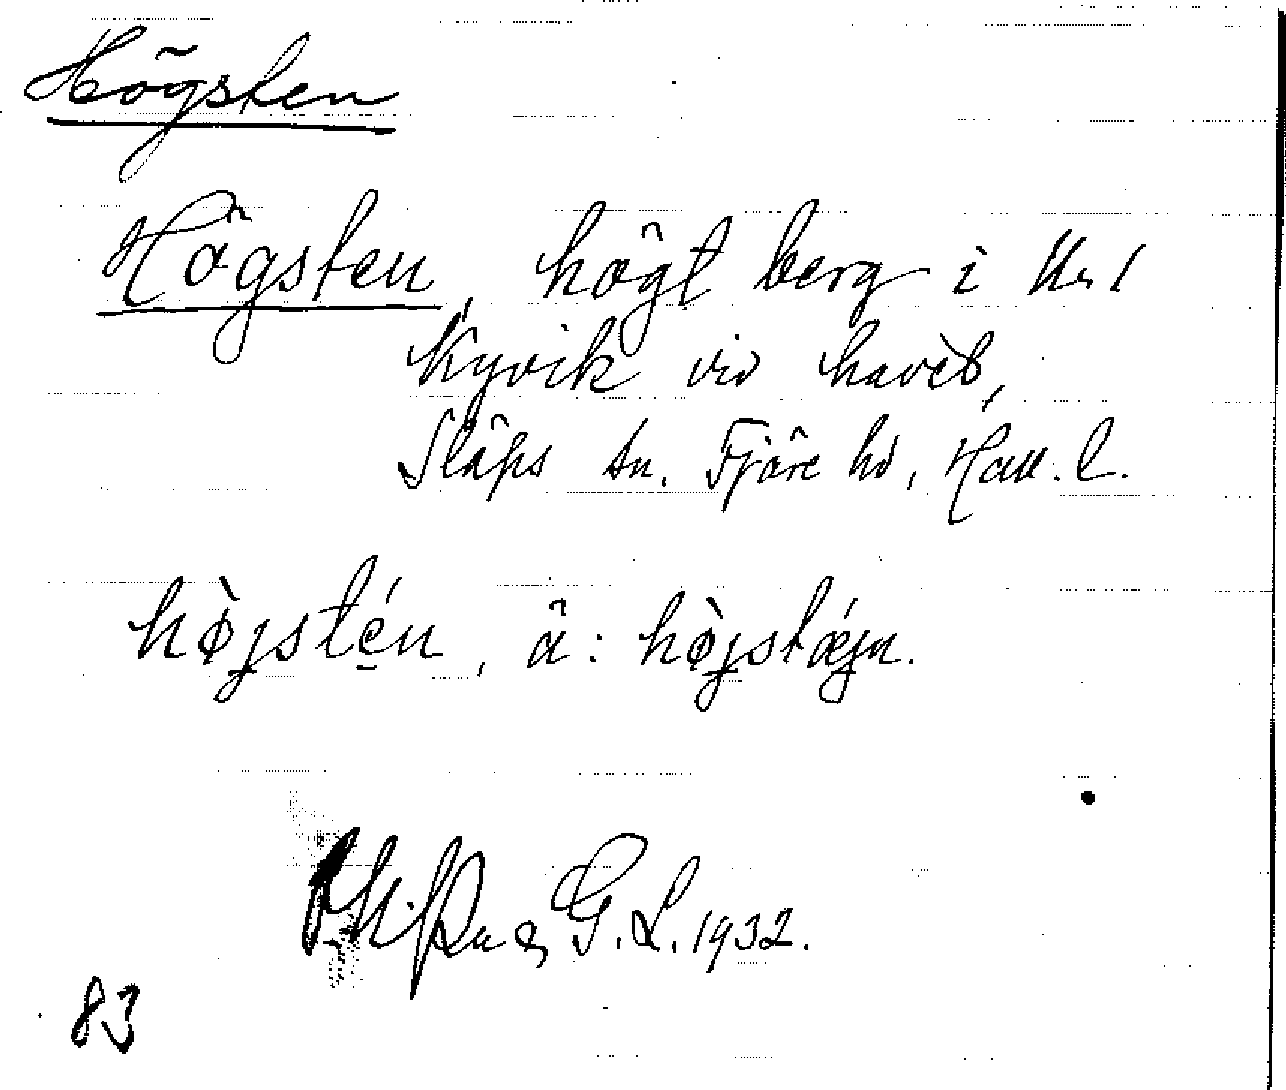 Högsten
Högsten, högt berg i
Kyvik vid havet,
Släps sn. Fjäre hd, Hall. l.
hòjstén, ä: hòjstǽjn.
G. L. 1932.
83